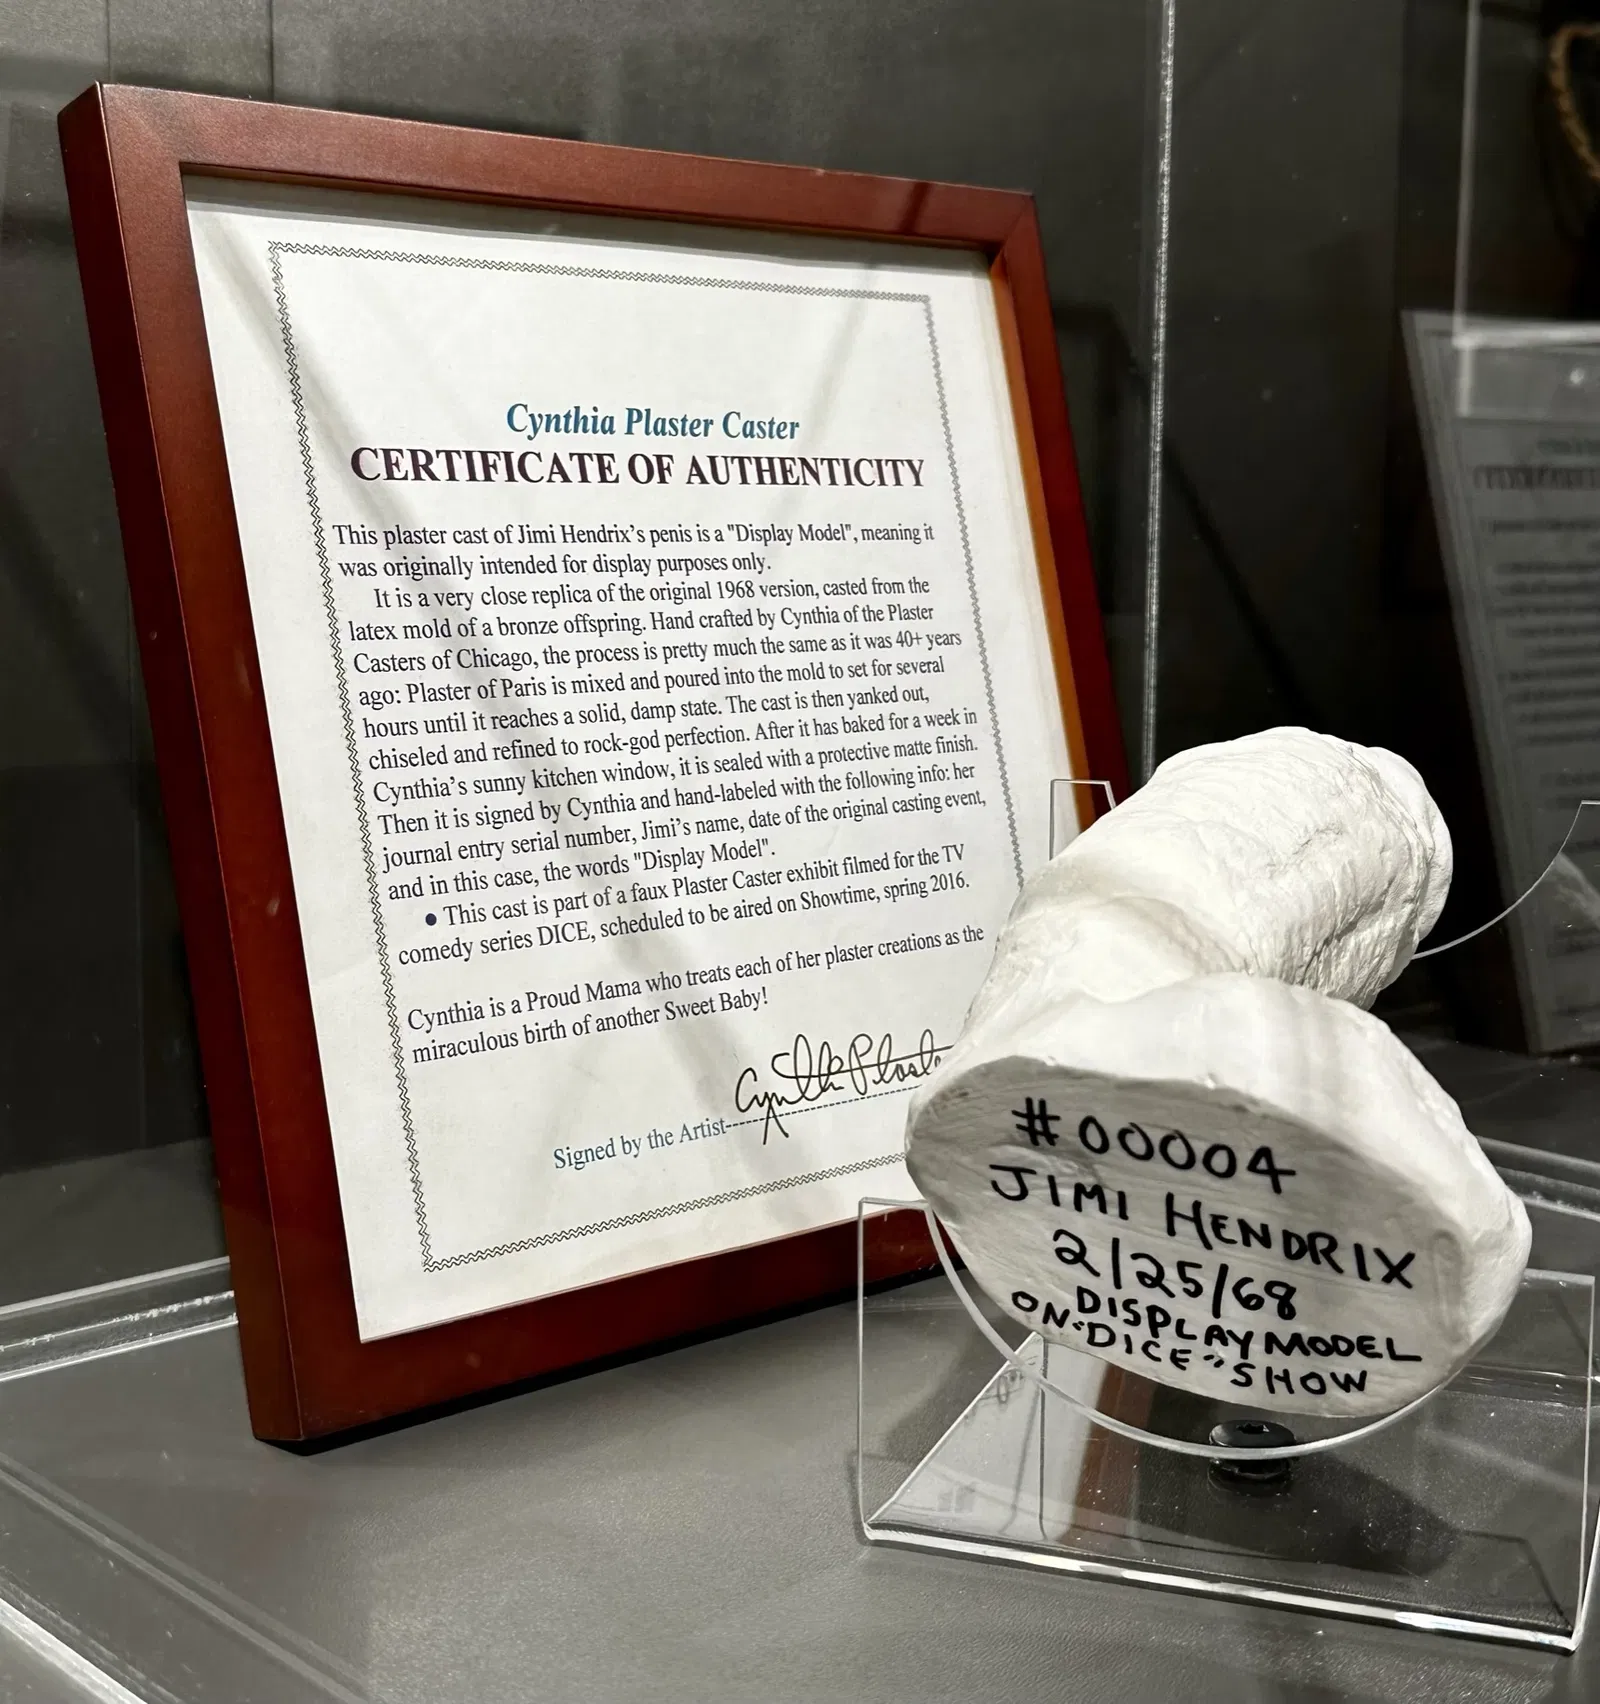 Cynthia Plaster Caster
CERTIFICATE OF AUTHENTICITY
This plaster cast of Jimi Hendrix's penis is a "Display Model", meaning it
was originally intended for display purposes only.
It is a very close replica of the original 1968 version, casted from the
latex mold of a bronze offspring. Hand crafted by Cynthia of the Plaster
Casters of Chicago, the process is pretty much the same as it was 40+ years
ago: Plaster of Paris is mixed and poured into the mold to set for several
hours until it reaches a solid, damp state. The cast is then yanked out,
chiseled and refined to rock-god perfection. After it has baked for a week in
Cynthia's sunny kitchen window, it is sealed with a protective matte finish.
Then it is signed by Cynthia and hand-labeled with the following info: her
journal entry serial number, Jimi's name, date of the original casting event,
and in this case, the words "Display Model".
● This cast is part of a faux Plaster Caster exhibit filmed for the TV
comedy series DICE, scheduled to be aired on Showtime, spring 2016.
Cynthia is a Proud Mama who treats each of her plaster creations as the
miraculous birth of another Sweet Baby!
Signed by the Artist
Cynthia
#00004
JIMI HENDRIX
2/25/68
DISPLAY MODEL
ON "DICE" SHOW